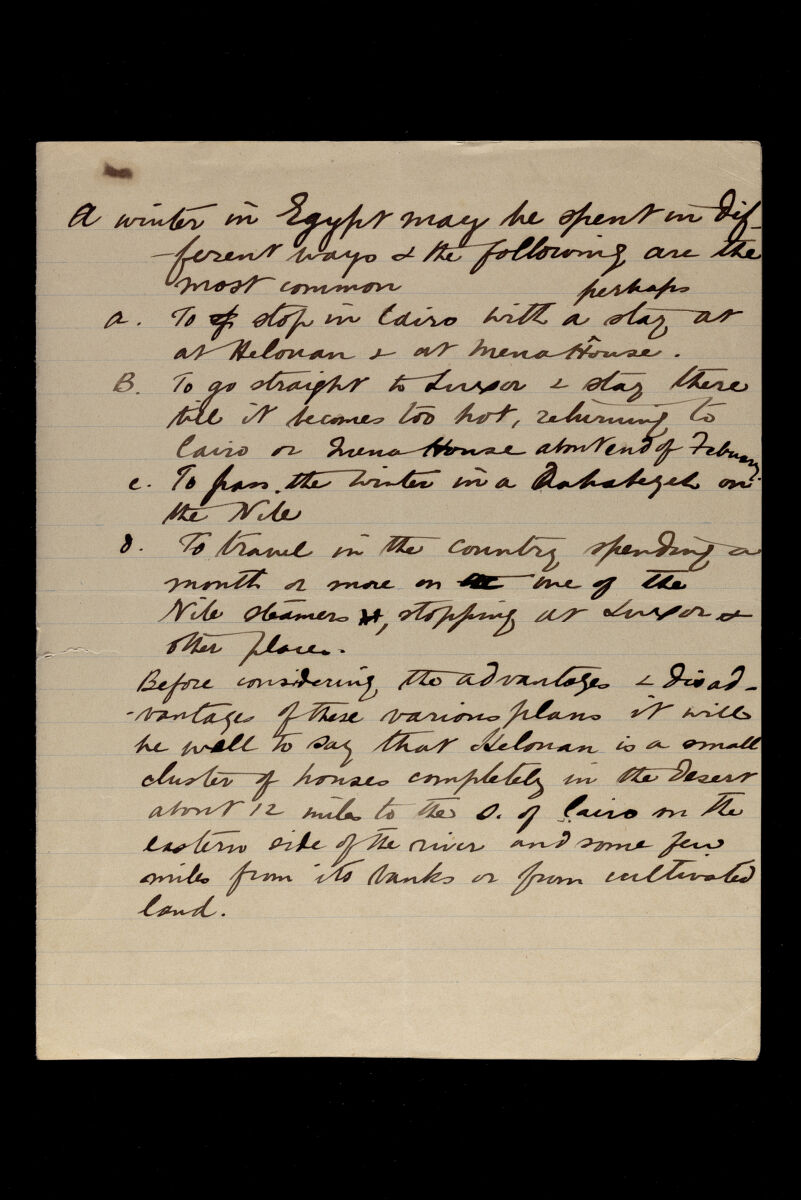 A winter in Egypt may be spent in dif-
ferent ways & the following are the
most common
perhaps
a. To stop in Cairo with a stay at
at Helouan & at Mena House.
B. To go straight to Luxor & stay there
till it becomes too hot, returning to
Cairo or Mena House about end of February.
c. To pass the winter in a Dahabeyeh on
the Nile
d. To travel in the country spending a
month or more on one of the
Nile steamers, stopping at Luxor &
other places.
Before considering the advantages & disad-
-vantages of these various plans it will
be well to say that Helouan is a small
cluster of houses completely in the desert
about 12 miles to the S. of Cairo on the
eastern side of the river and some few
miles from its banks or from cultivated
land.